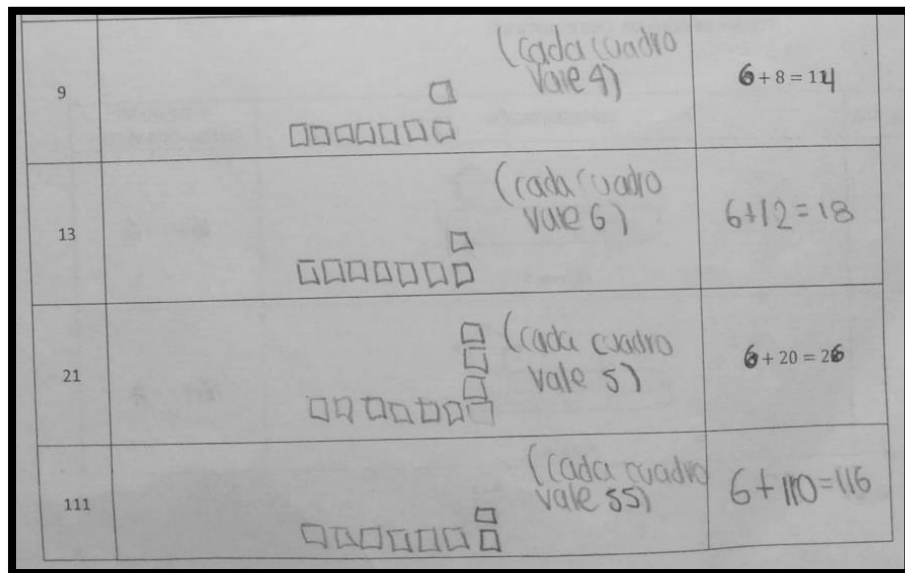 9
(cada cuadro
vale 4)
6 + 8 = 14
13
(cada cuadro
vale 6)
6+12=18
21
(cada cuadro
vale 5)
6 + 20 = 26
111
(cada cuadro
vale 55)
6+110=116